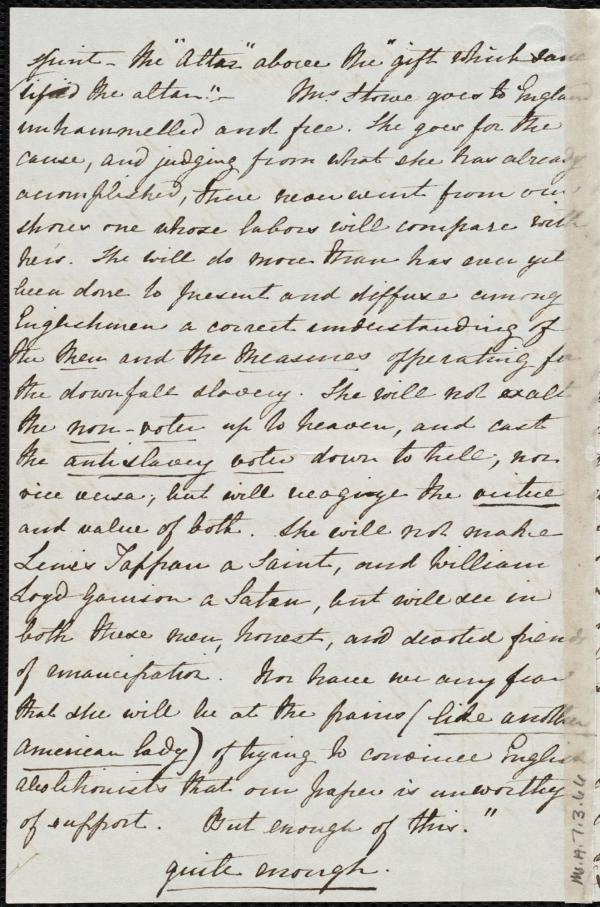 spirit - the "Altar" above the "gift which sanc
tified the altar." - Mrs. Stowe goes to England
untrammelled and free. She goes for the
cause, and judging from what she has already
accomplished, there never went from our
shores one whose labors will compare with
hers. She will do more than has ever yet
been done to present and diffuse among
Englishmen a correct understanding of
the Men and the Measures operating for
the downfall slavery. She will not exalt
the non-voter up to heaven, and cast
the antislavery voter down to hell, nor
vice versa; but will recognize the virtue
and value of both. She will not make
Lewis Tappan a Saint, and William
Loyd Garrison a Satan, but will see in
both these men, honest, and devoted friends
of emancipation. Nor have we any fear
that she will be at the pains (like another
American lady) of trying to convince English
abolitionists that our paper is unworthy
of support. But enough of this."
quite enough.
Ms.A.7.3.66